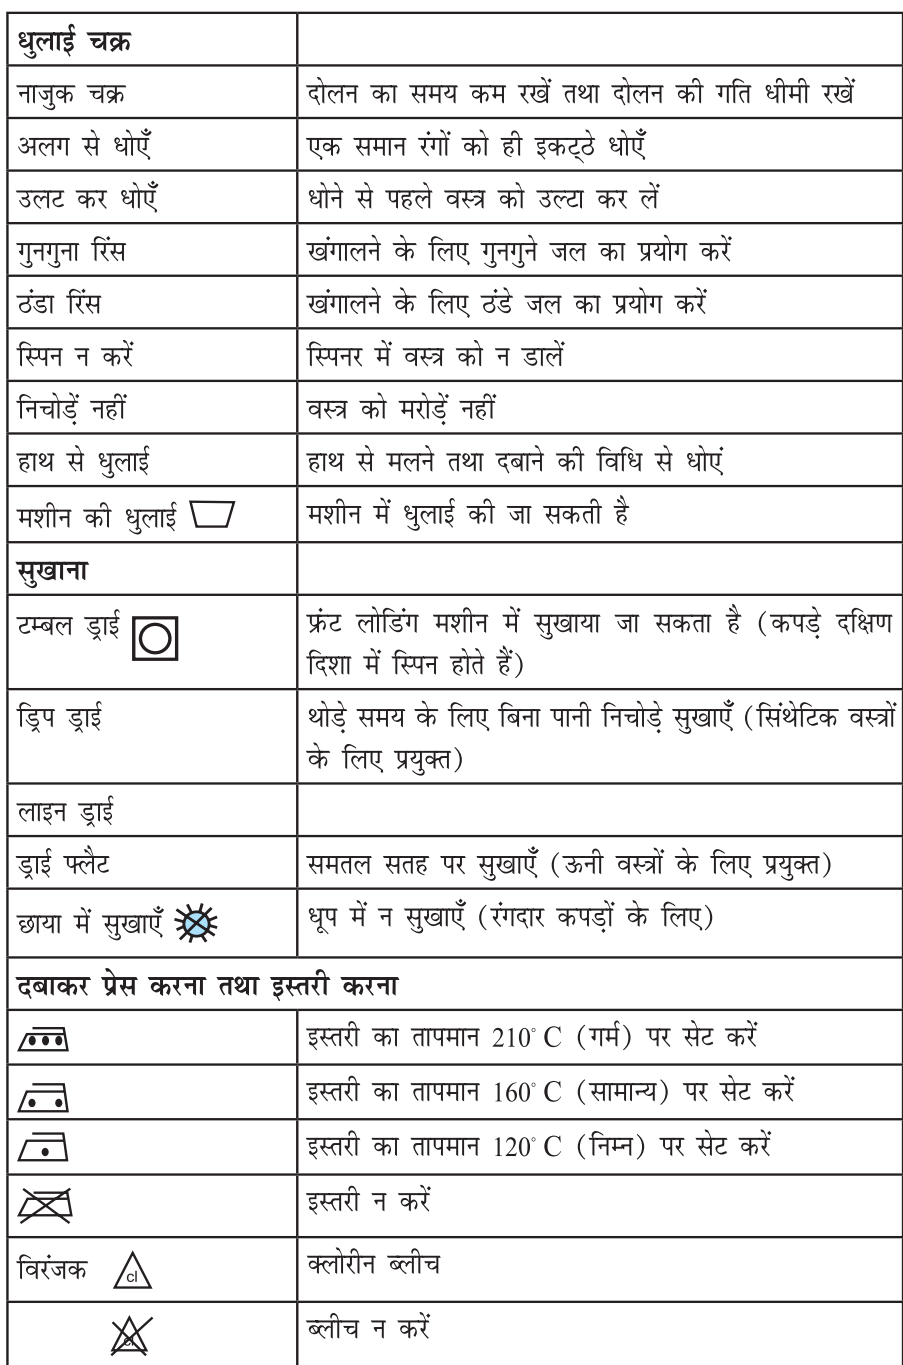 धुलाई चक्र
नाजुक चक्र दोलन का समय कम रखें तथा दोलन की गति धीमी रखें
अलग से धोएँ एक समान रंगों को ही इकट्ठे धोएँ
उलट कर धोएँ धोने से पहले वस्त्र को उल्टा कर लें
गुनगुना रिंस खंगालने के लिए गुनगुने जल का प्रयोग करें
ठंडा रिंस खंगालने के लिए ठंडे जल का प्रयोग करें
स्पिन न करें स्पिनर में वस्त्र को न डालें
निचोड़ें नहीं वस्त्र को मरोड़ें नहीं
हाथ से धुलाई हाथ से मलने तथा दबाने की विधि से धोएं
मशीन की धुलाई मशीन में धुलाई की जा सकती है
सुखाना
टम्बल ड्राई फ्रंट लोडिंग मशीन में सुखाया जा सकता है (कपड़े दक्षिण
दिशा में स्पिन होते हैं)
ड्रिप ड्राई थोड़े समय के लिए बिना पानी निचोड़े सुखाएँ (सिंथेटिक वस्त्रों
के लिए प्रयुक्त)
लाइन ड्राई
ड्राई फ्लैट समतल सतह पर सुखाएँ (ऊनी वस्त्रों के लिए प्रयुक्त)
छाया में सुखाएँ धूप में न सुखाएँ (रंगदार कपड़ों के लिए)
दबाकर प्रेस करना तथा इस्तरी करना
इस्तरी का तापमान 210° C (गर्म) पर सेट करें
इस्तरी का तापमान 160° C (सामान्य) पर सेट करें
इस्तरी का तापमान 120° C (निम्न) पर सेट करें
इस्तरी न करें
विरंजक cl क्लोरीन ब्लीच
cl ब्लीच न करें